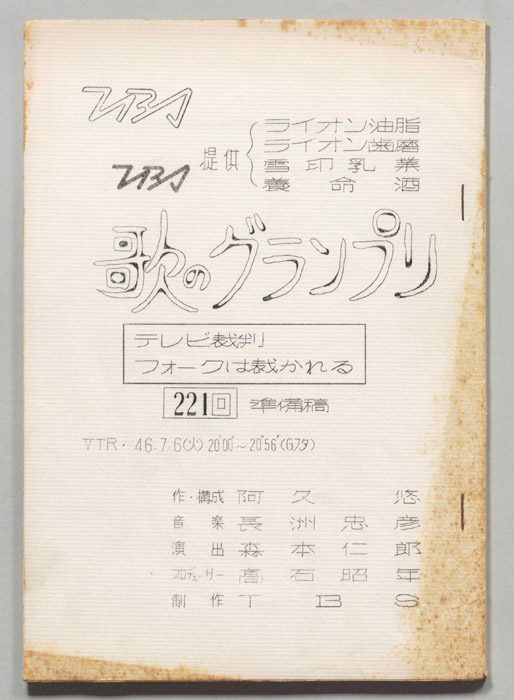 TBS
提供
ライオン油脂
ライオン歯磨
雪印乳業
養命酒
TBS
歌のグランプリ
テレビ裁判
フォークは裁かれる
221回 準備稿
VTR・46.7.6(火) 20°00'～20°56'(Gスタ)
作・構成 阿久悠
音楽 長洲忠彦
演出 森本仁郎
プロデューサー 高石昭年
制作 TBS